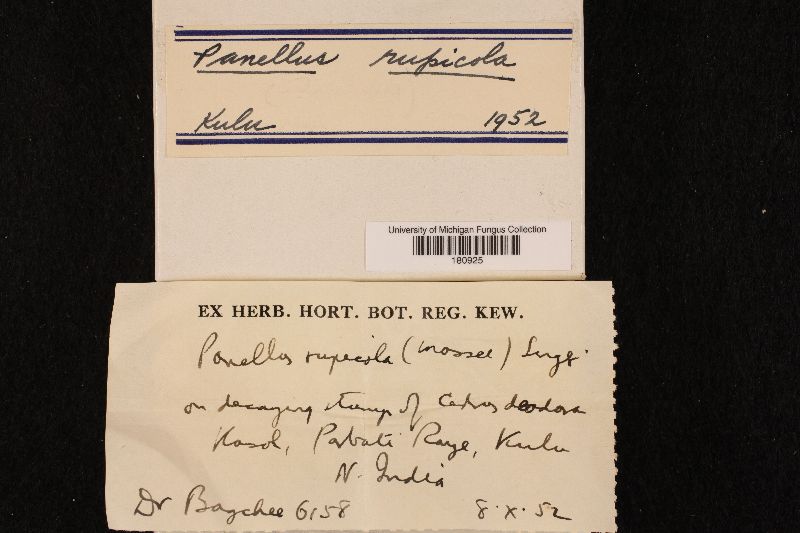 Panellus rupicola
Kulu 1952
University of Michigan Fungus Collection
180925
EX HERB. HORT. BOT. REG. KEW.
Panellus rupicola (Massee) Singer
on decaying stump of Cedrus deodora
Kasol, Parbati Range, Kulu
N. India
Dr Bagchee 6158 8.X.52